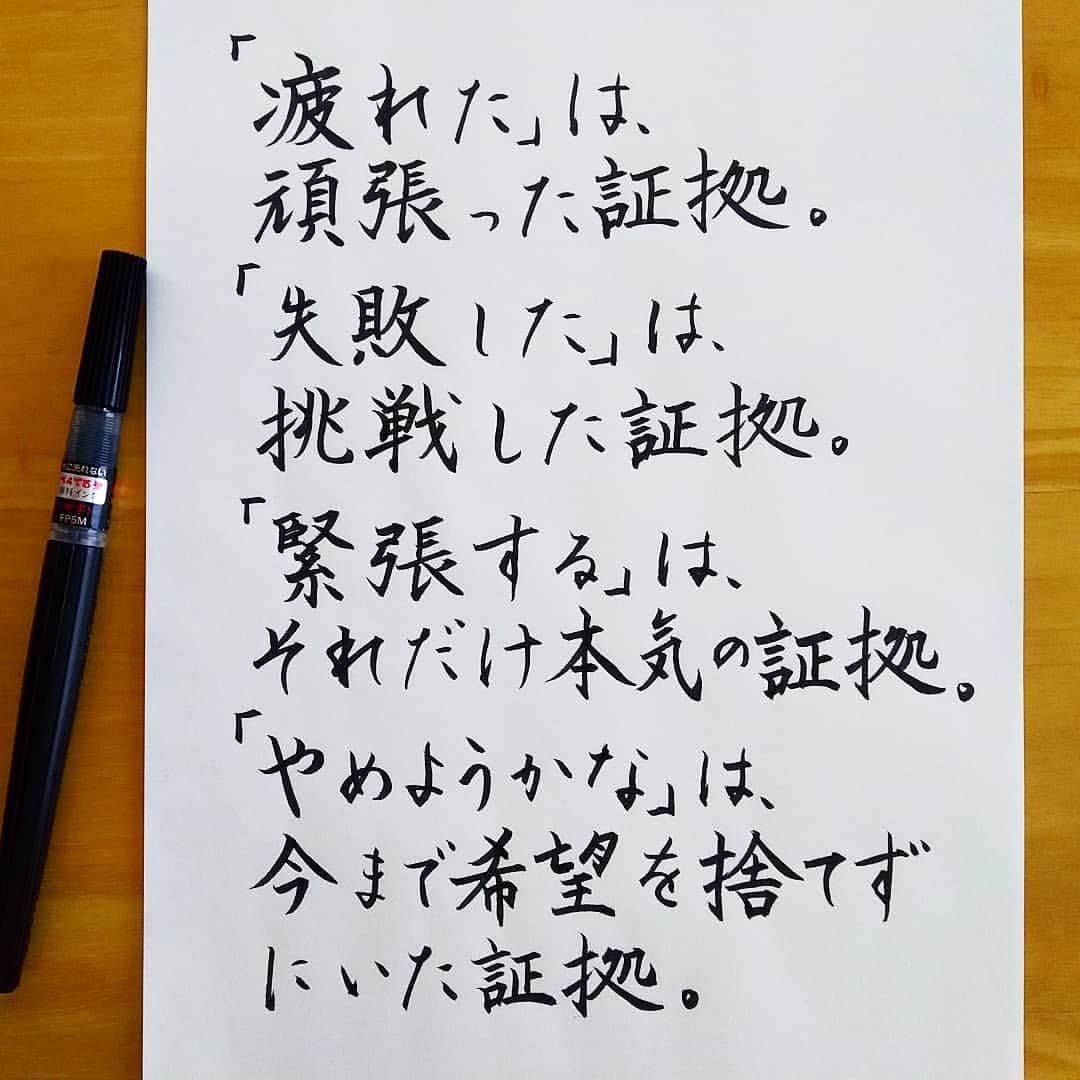 「疲れた」は、
頑張った証拠。
「失敗した」は、
挑戦した証拠。
「緊張する」は、
それだけ本気の証拠。
「やめようかな」は、
今まで希望を捨てず
にいた証拠。
ぺんてる
FP5M